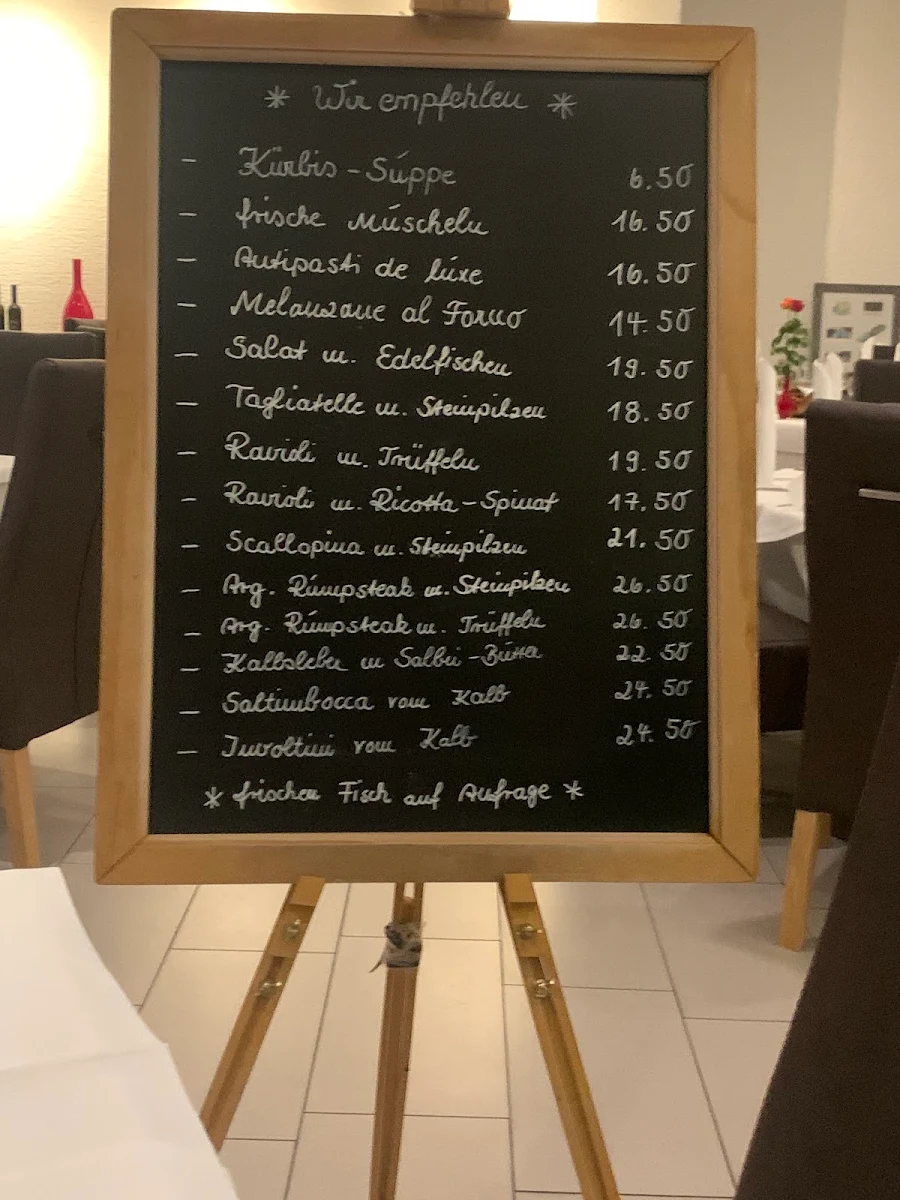 * Wir empfehlen *
- Kürbis - Suppe 6.50
- frische Muscheln 16.50
- Antipasti de luxe 16.50
- Melanzane al Forno 14.50
- Salat m. Edelfischen 19.50
- Tagliatelle m. Steinpilzen 18.50
- Ravioli m. Trüffeln 19.50
- Ravioli m. Ricotta - Spinat 17.50
- Scallopina m. Steinpilzen 21.50
- Arg. Rumpsteak m. Steinpilzen 26.50
- Arg. Rumpsteak m. Trüffeln 26.50
- Kalbsleber m Salbei - Butter 22.50
- Saltimbocca vom Kalb 24.50
- Involtini vom Kalb 24.50
* frischen Fisch auf Anfrage *